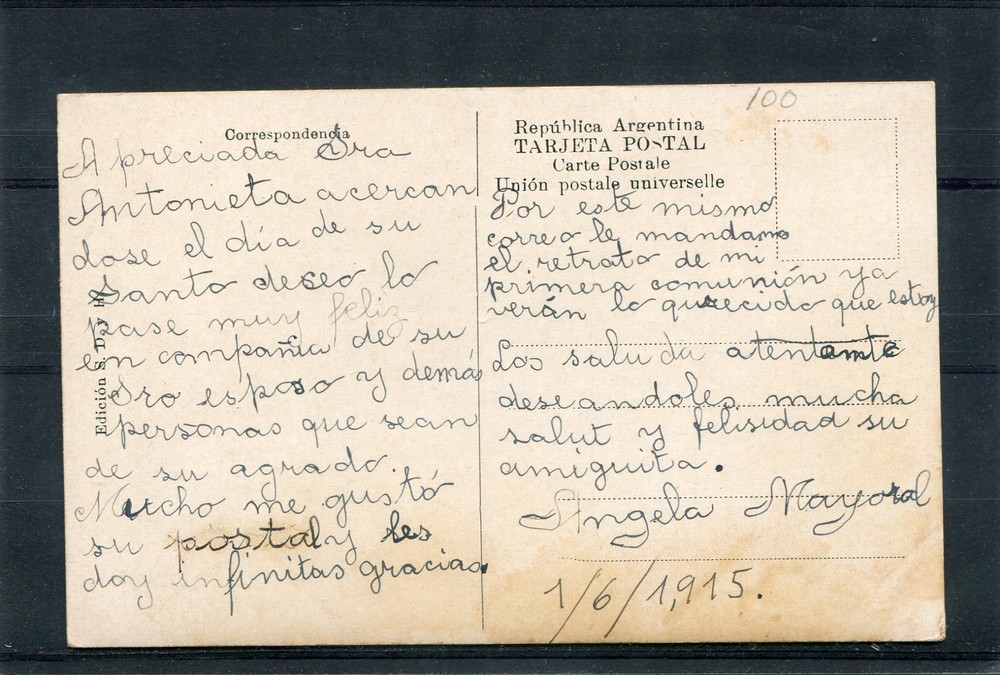 Correspondencia
Apreciada Sra
Antonieta acercan
dose el día de su
Santo deseo lo
pase muy feliz
en compañia de su
Sro esposo y demás
personas que sean
de su agrado.
Mucho me gustó
su postal y les
doy infinitas gracias.
Edición S. D. y H.
100
República Argentina
TARJETA POSTAL
Carte Postale
Unión postale universelle
Por este mismo
correo le mandamo
el retrato de mi
primera comunión ya
verán lo qurecido que estoy
Los saluda atentamte
deseandoles mucha
salut y felisidad su
amiguita.
Angela Mayoral
1/6/1,915.